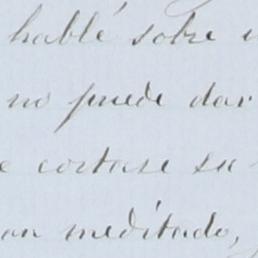 hablé sobre
no puede dar
cortase su
meditado,